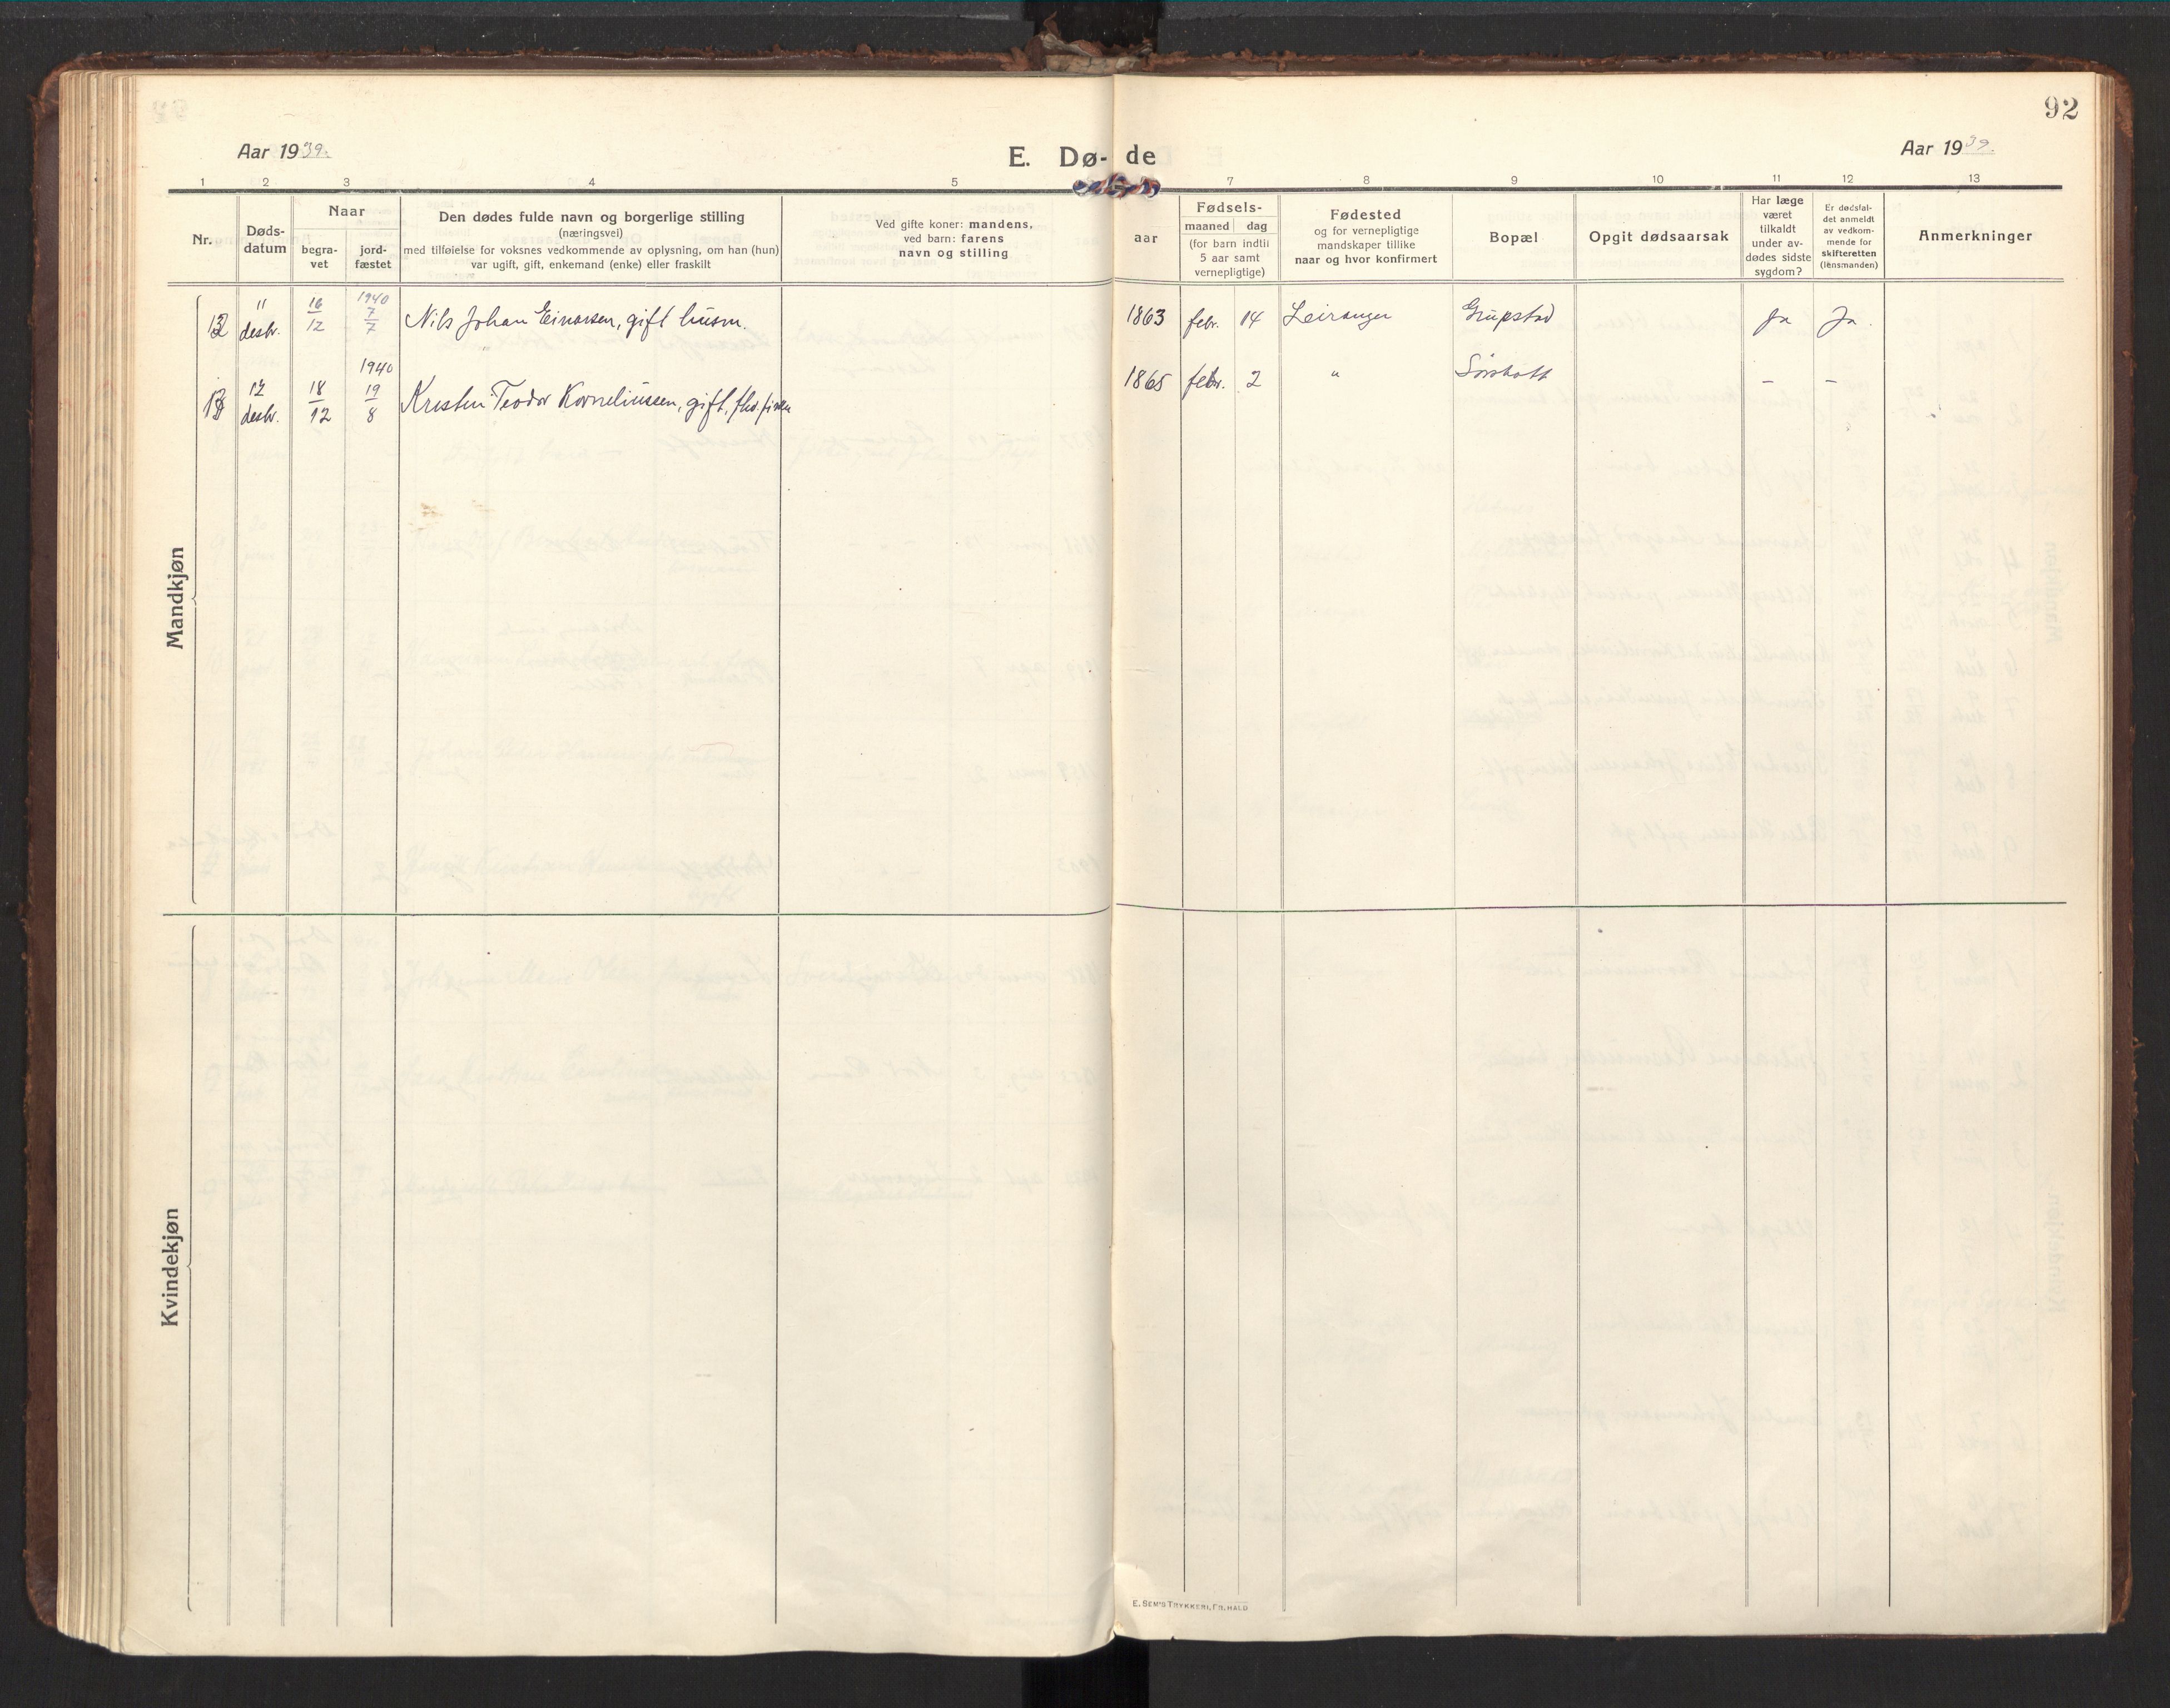 92
Aar 1939.
E. Dø- de
Aar 1939.
1 2 3 4 5 7 8 9 10 11 12 13
Nr.
Døds-
datum
Naar
begra-
vet
jord-
fæstet
Den dødes fulde navn og borgerlige stilling
(næringsvei)
med tilføielse for voksnes vedkommende av oplysning, om han (hun)
var ugift, gift, enkemand (enke) eller fraskilt
Ved gifte koner: mandens,
ved barn: farens
navn og stilling
aar
Fødsels-
maaned dag
(for barn indtil
5 aar samt
vernepligtige)
Fødested
og for vernepligtige
mandskaper tillike
naar og hvor konfirmert
Bopæl
Opgit dødsaarsak
Har læge
været
tilkaldt
under av-
dødes sidste
sygdom?
Er dødsfal-
det anmeldt
av vedkom-
mende for
skifteretten
(lensmanden)
Anmerkninger
Mandkjøn
12 " desbr. 16/12 1940 7/7 Nils Johan Einarsen, gift husm. 1863 febr. 14 Leiranger Grupstad Ja Ja.
13 12 desbr. 18/12 1940 19/8 Kristen Teodor Korneliussen, gift, fhv. fisker 1865 febr. 2 " Sørskott – –
Kvindekjøn
E. SEM'S TRYKKERI, FR.HALD